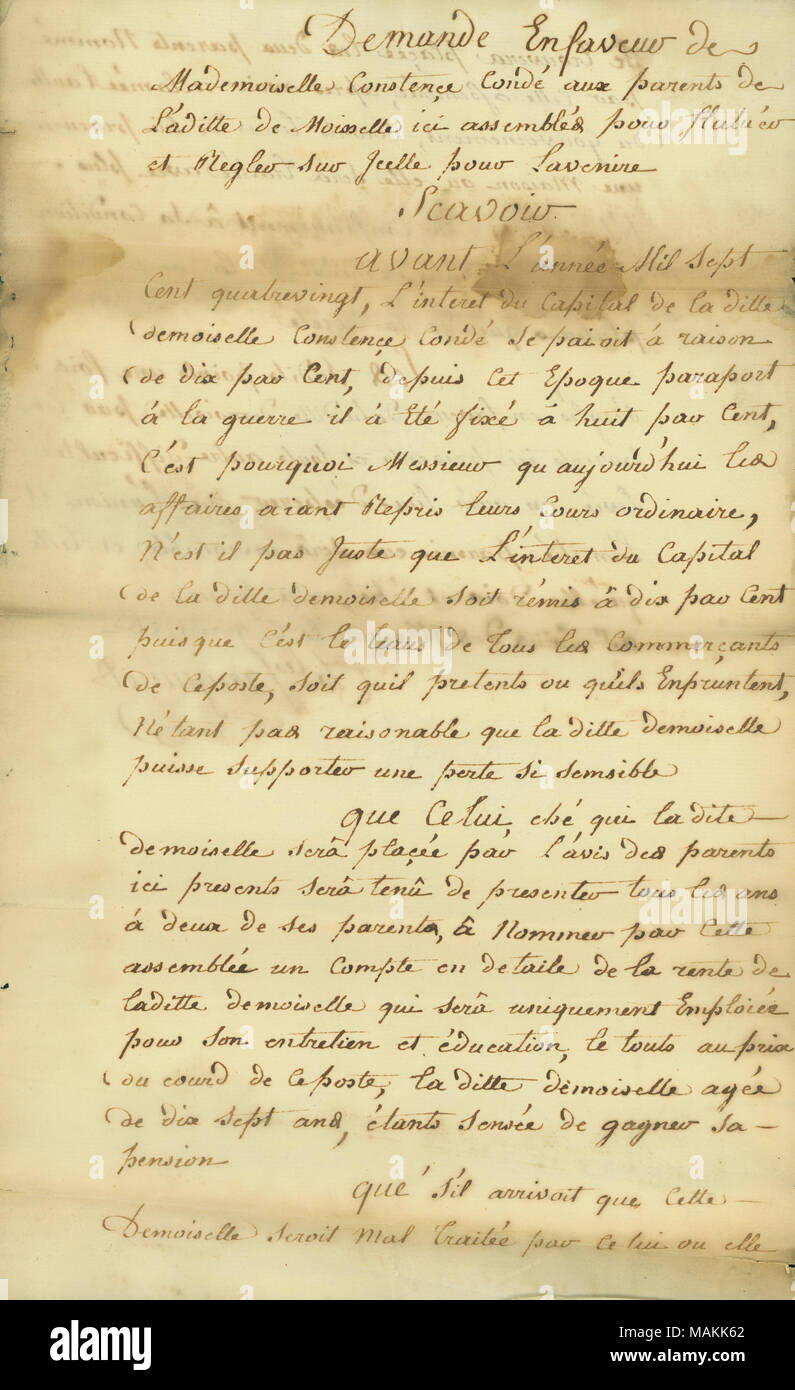 Demande Enfaveur de
Mademoiselle Constençe Condé aux parents de
Laditte de Moisselle ici assemblés pour Statuér
et Regler sur Jcelle pour Lavenire
Scavoir
avant L'année Mil Sept
Cent quatrevingt, L'interet du Capital de la ditte
demoiselle Constençe Condé se paioit á raison
de dix par Cent, depuis Cet Epoque paraport
á la guerre il á Eté fixé á huit par Cent,
C'est pourquoi Messieur qu aujourd'hui les
affaires aiant Repris leurs Cours ordinaire,
N'est il pas Juste que L'interet du Capital
de la ditte demoiselle soit rémis â dix par Cent
puisque C'ést le taux de Tous les Commerçants
de Ceposte, soit quil pretents ou qu'ils Enprúntent,
Nétant pas raisonable que la ditte demoiselle
puisse supporter une perte si semsible
que Celui ché qui la dite
demoiselle serâ plaçée par l'ávis des parents
ici presents serâ tenû de presenter tous les ans
á deux de ses parents, â Nommer par Cette
assemblée un Compte en detaile de la rente de
laditte demoiselle qui serâ uniquement Emploiée
pour son entretien et éducation, le touts au prix
du courd de Ceposte, la ditte demoiselle agée
de dix sept ans, étants Sensée de gagner sa
pension
que' s'il arrivoit que Cette
Demoiselle seroit Mal traitée par Ce lui ou elle
alamy
alamy
Image ID: MAKK62
www.alamy.com